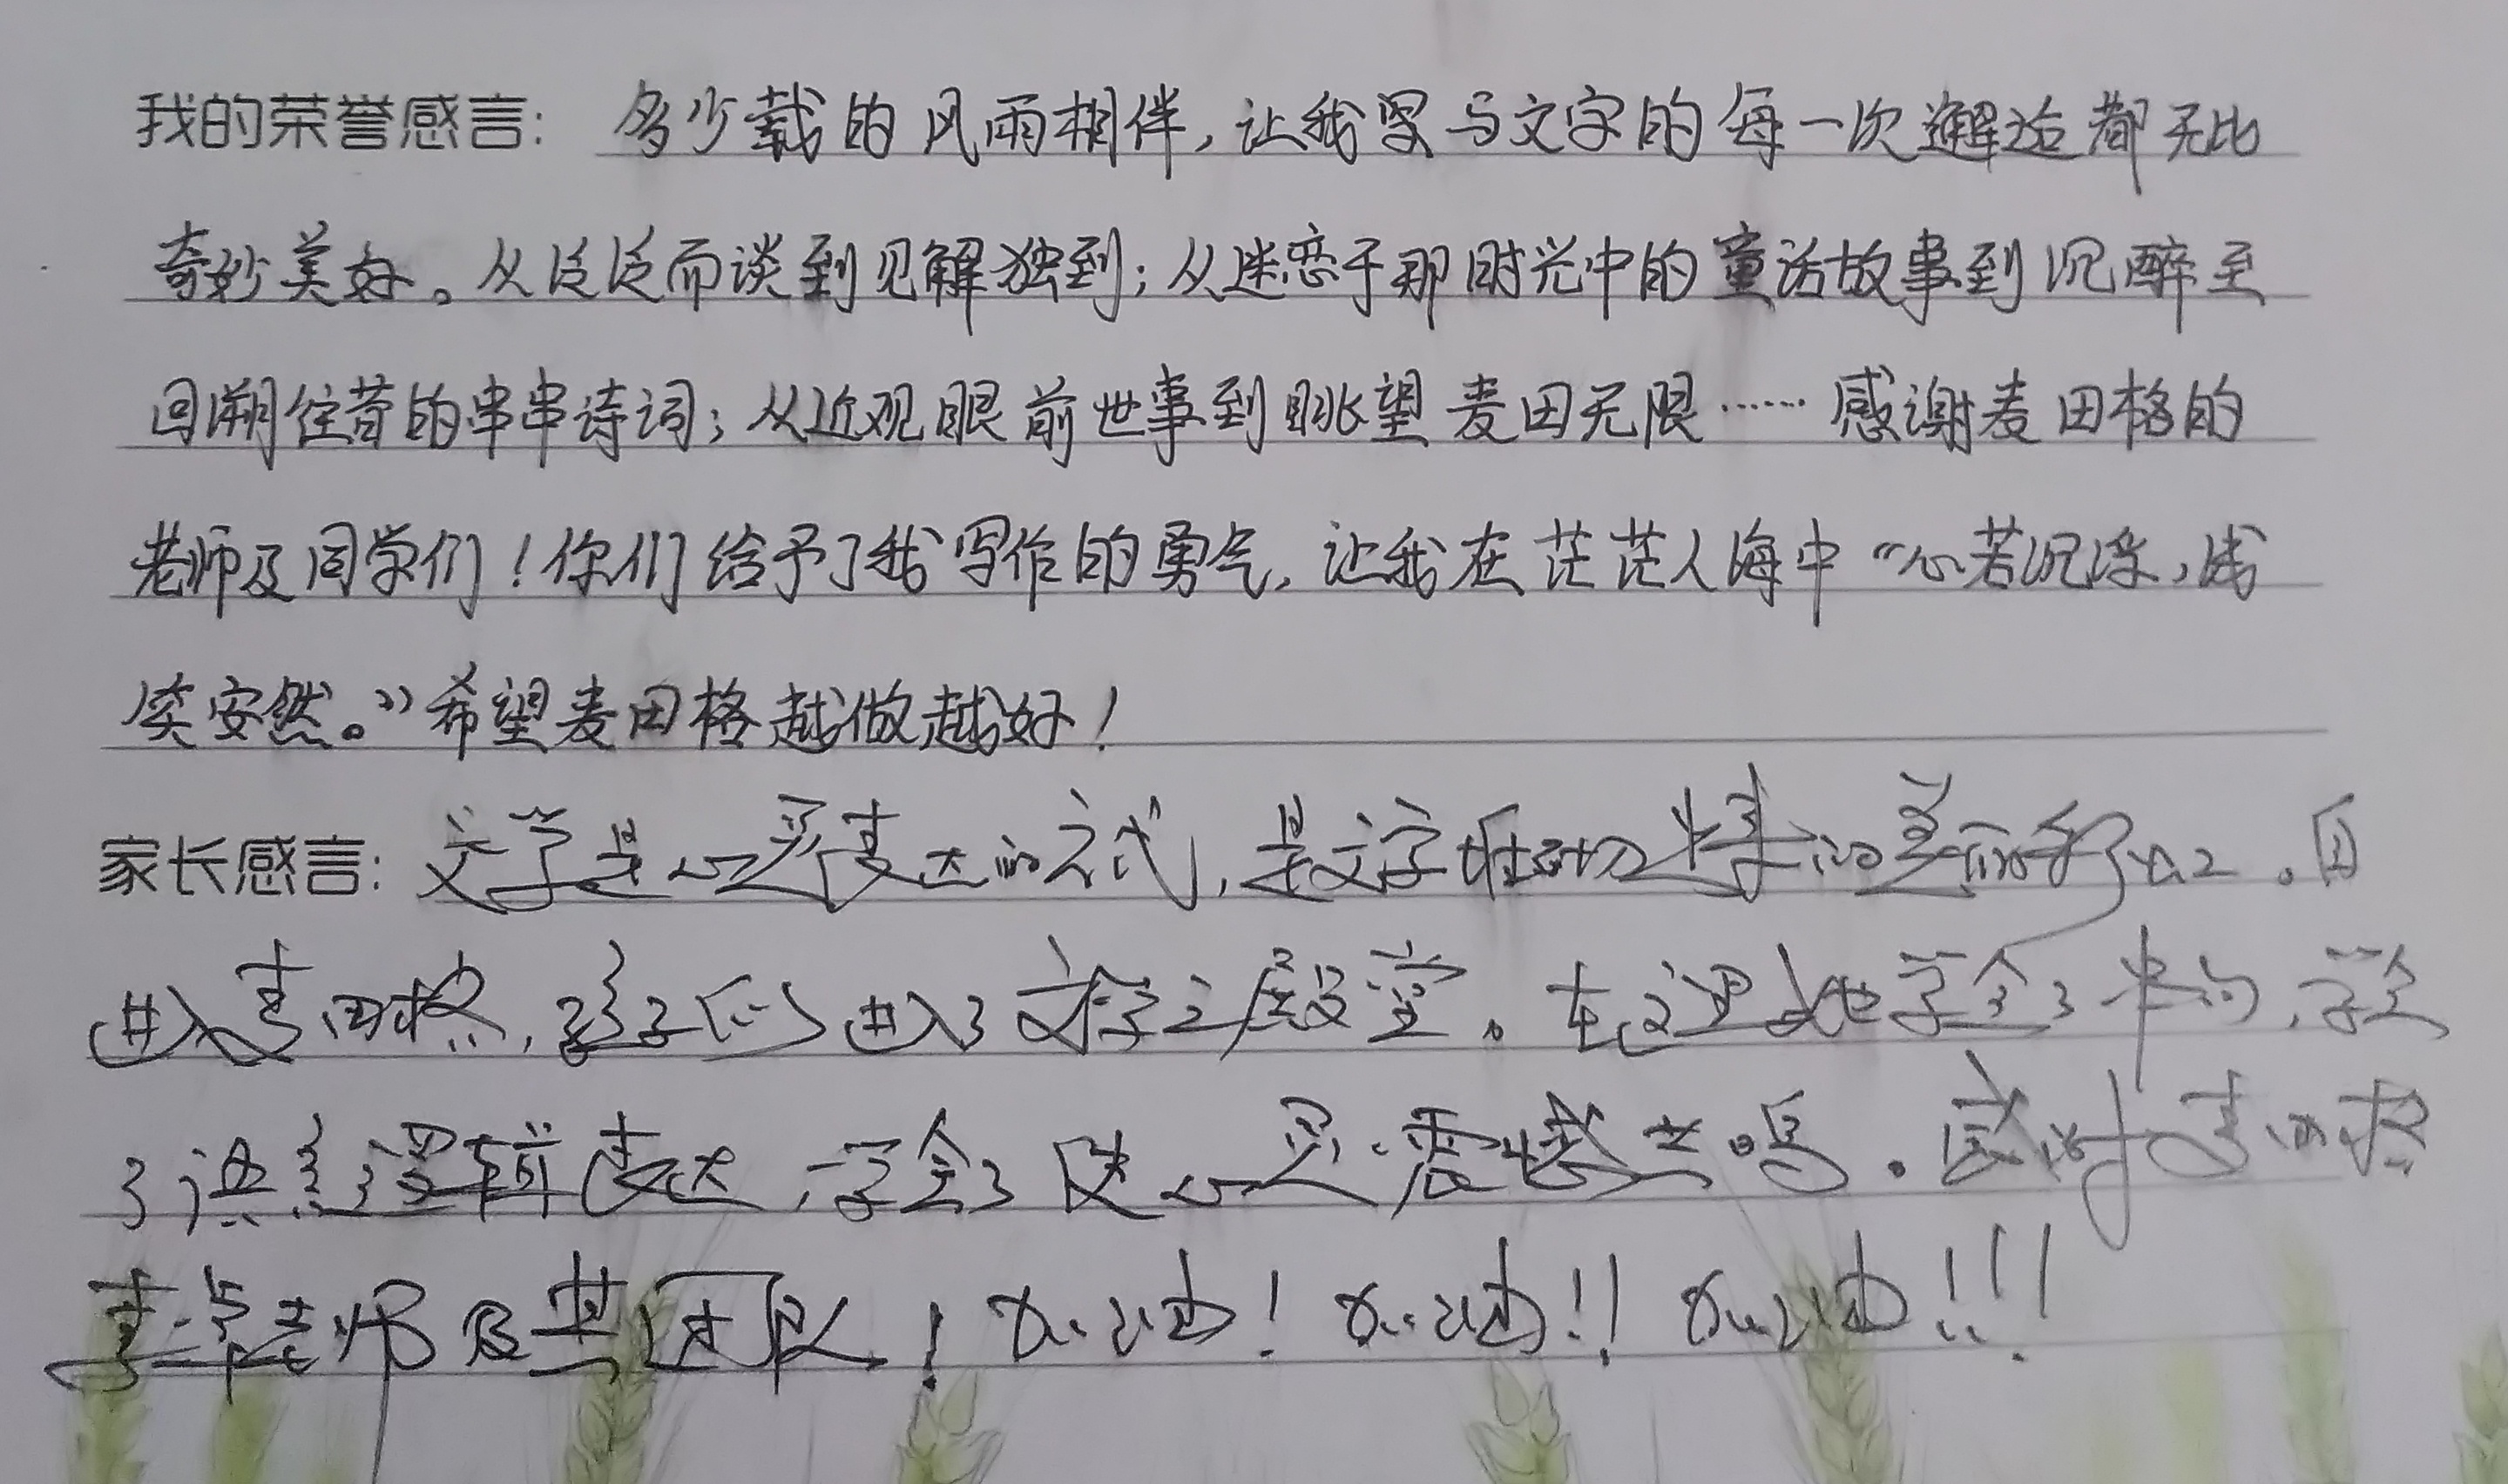 我的荣誉感言: 多少载的风雨相伴，让我与文字的每一次邂逅都无比
奇妙美好。从泛泛而谈到见解独到；从迷恋于那时光中的童话故事到沉醉至
回溯往昔的串串诗词；从近观眼前世事到眺望麦田无限……感谢麦田格的
老师及同学们！你们给予了我写作的勇气，让我在茫茫人海中“心若沉浮，浅
笑安然。”希望麦田格越做越好！
家长感言: 文学是心灵表达的方式，是文字堆切的美丽。自
进入麦田格，孩子仿进入了文学之殿堂。在这里她学会了，学会
了逻辑表达，学会了使心灵震撼共鸣。感谢麦田格
老师及其团队！加油！加油!! 加油!!!